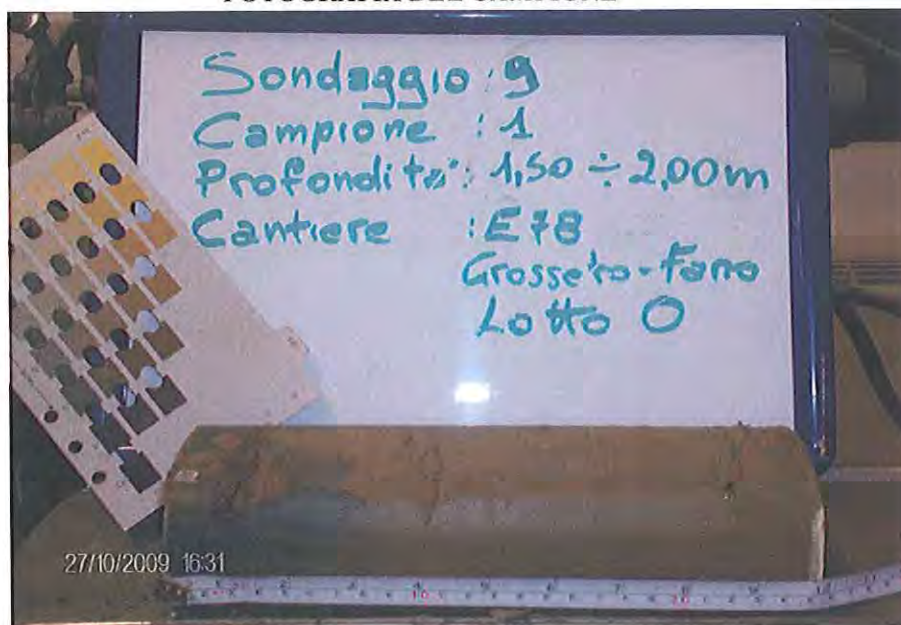 Sondaggio: 9
Campione : 1
Profondità: 1,50 ÷ 2,00 m
Cantiere : E78
Grosseto-Fano
Lotto 0
27/10/2009 16:31